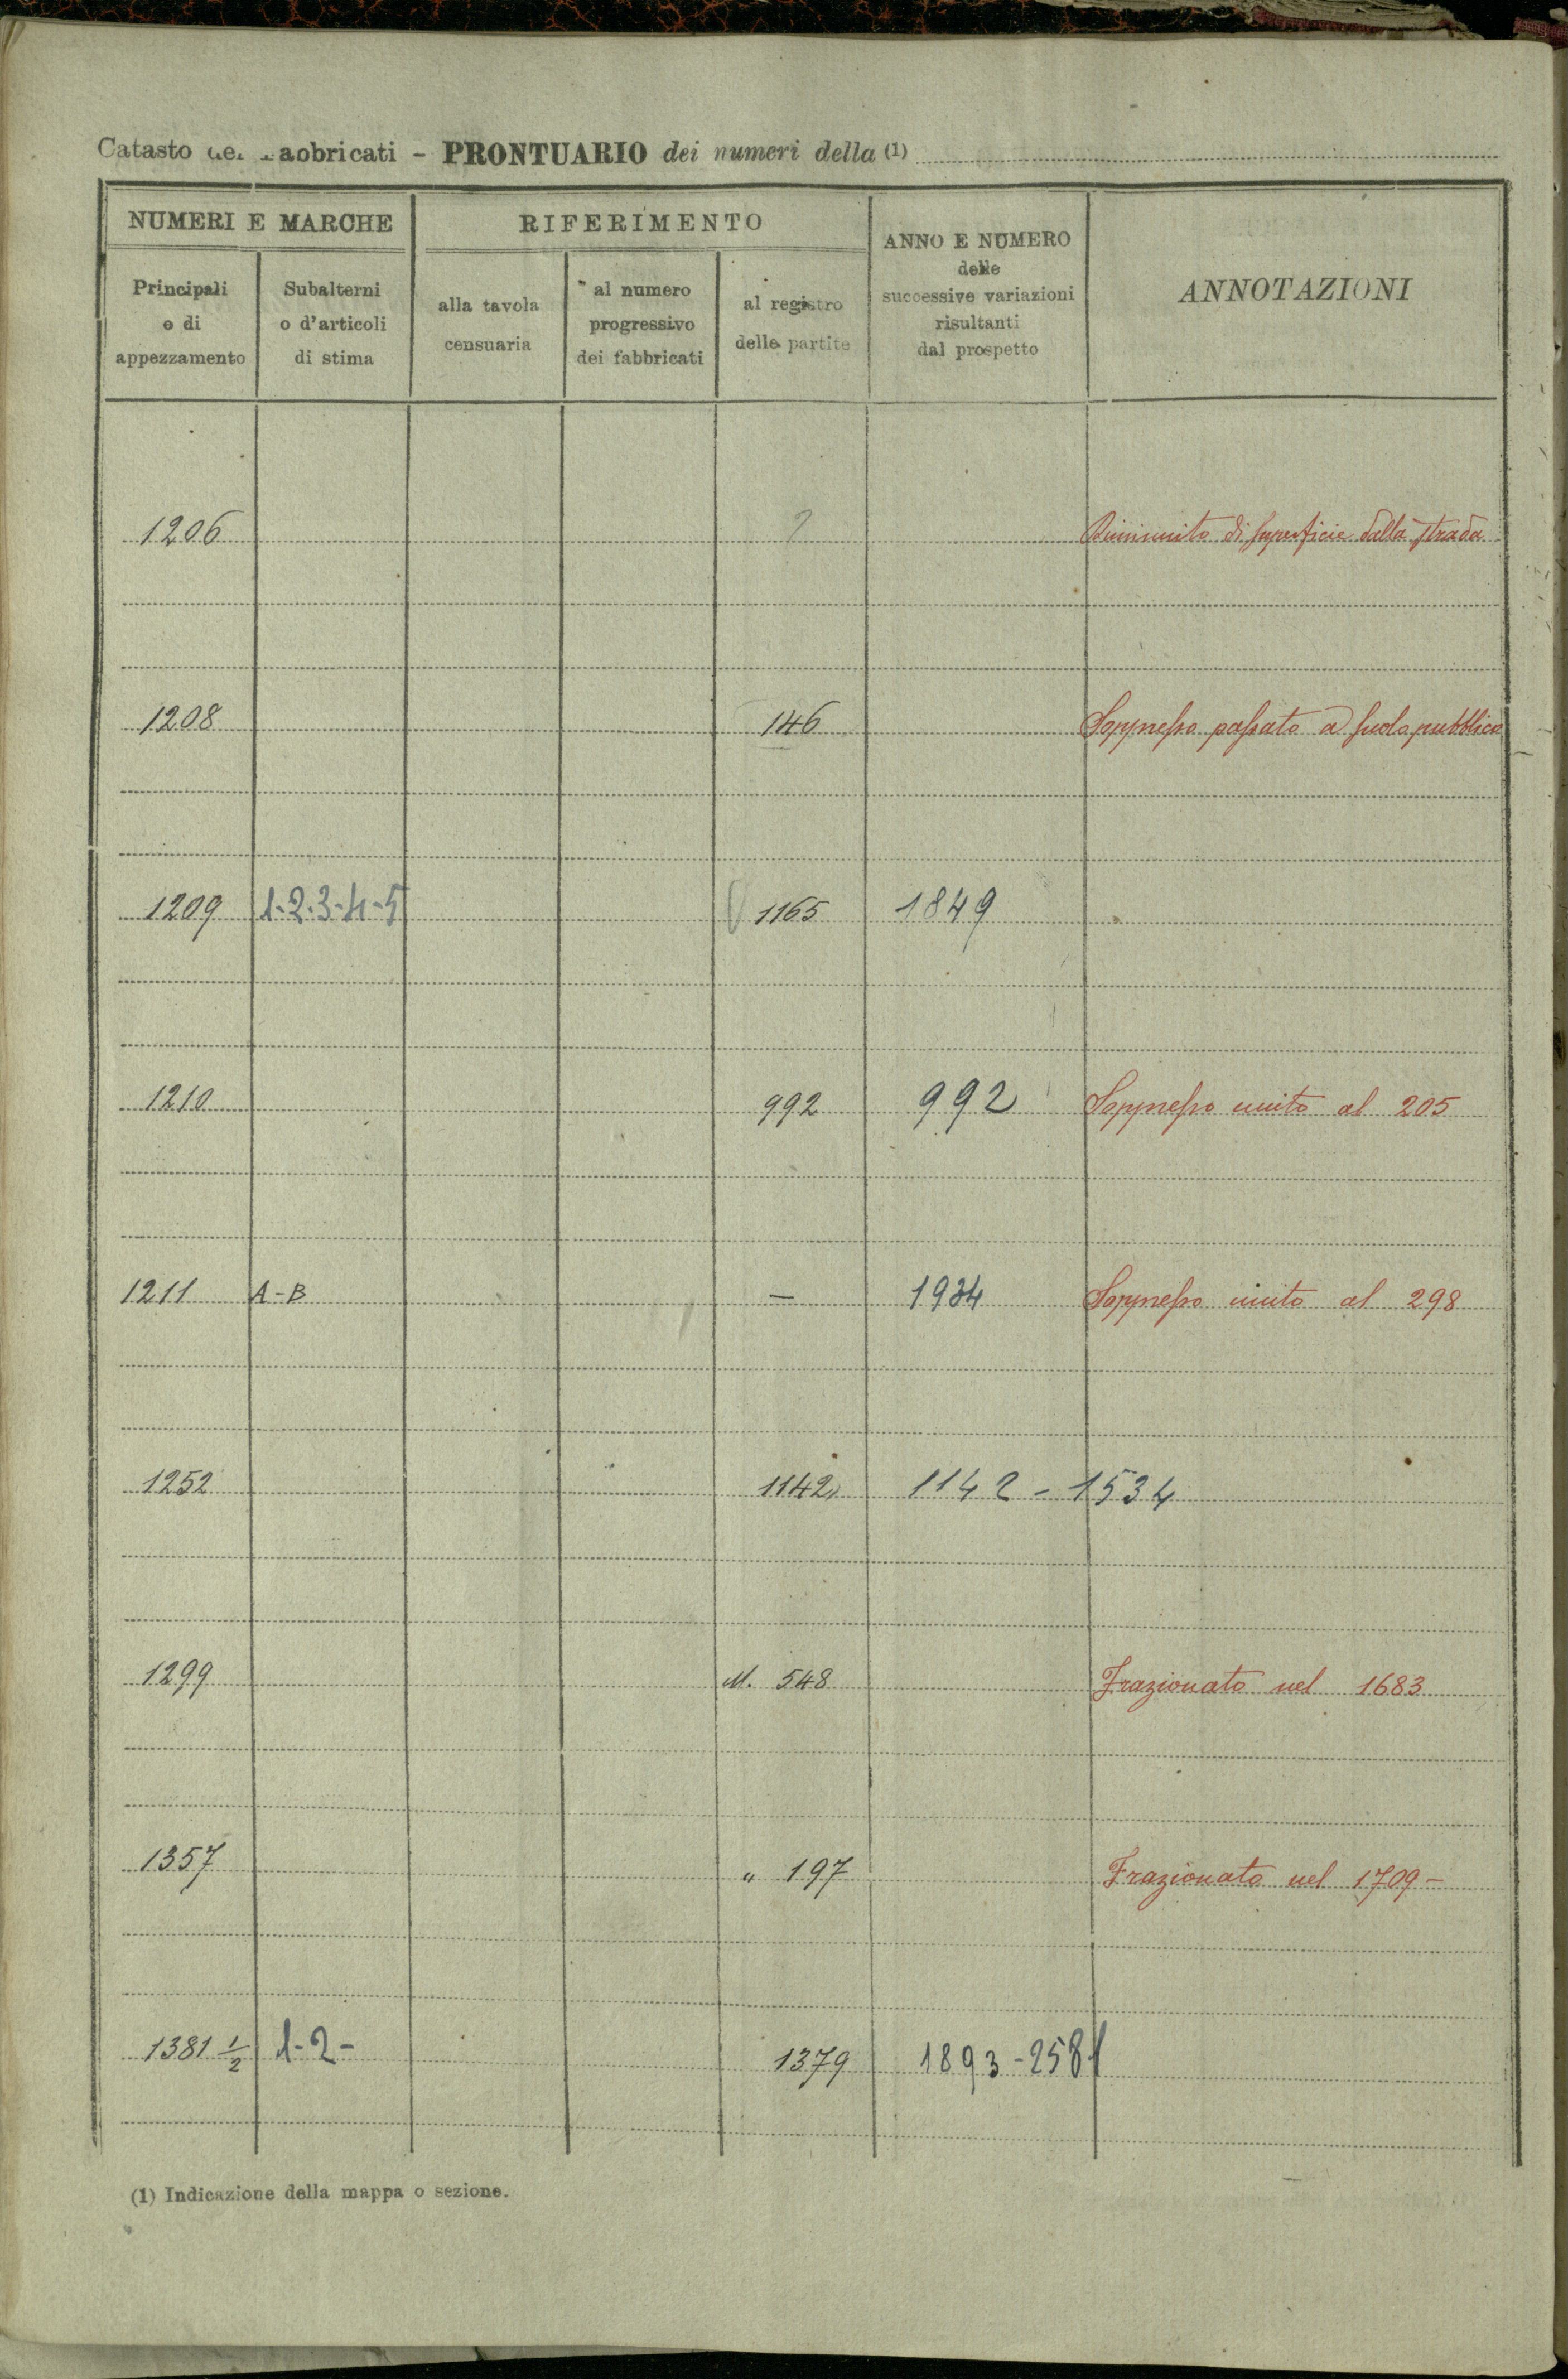 Catasto dei Fabbricati - PRONTUARIO dei numeri della (1)
NUMERI E MARCHE RIFERIMENTO ANNO E NUMERO delle successive variazioni risultanti dal prospetto ANNOTAZIONI
Principali e di appezzamento Subalterni o d'articoli di stima alla tavola censuaria al numero progressivo dei fabbricati al registro delle partite
1206 ? Diminuito di superficie dalla strada
1208 146 Soppresso passato a suolo pubblico
1209 1-2-3-4-5 1165 1849
1210 992 992 Soppresso unito al 205
1211 A-B — 1934 Soppresso unito al 298
1252 1142 1142 - 1534
1299 M. 548 Frazionato nel 1683
1357 " 197 Frazionato nel 1709 -
1381 1/2 1-2- 1379 1893-2581
(1) Indicazione della mappa o sezione.